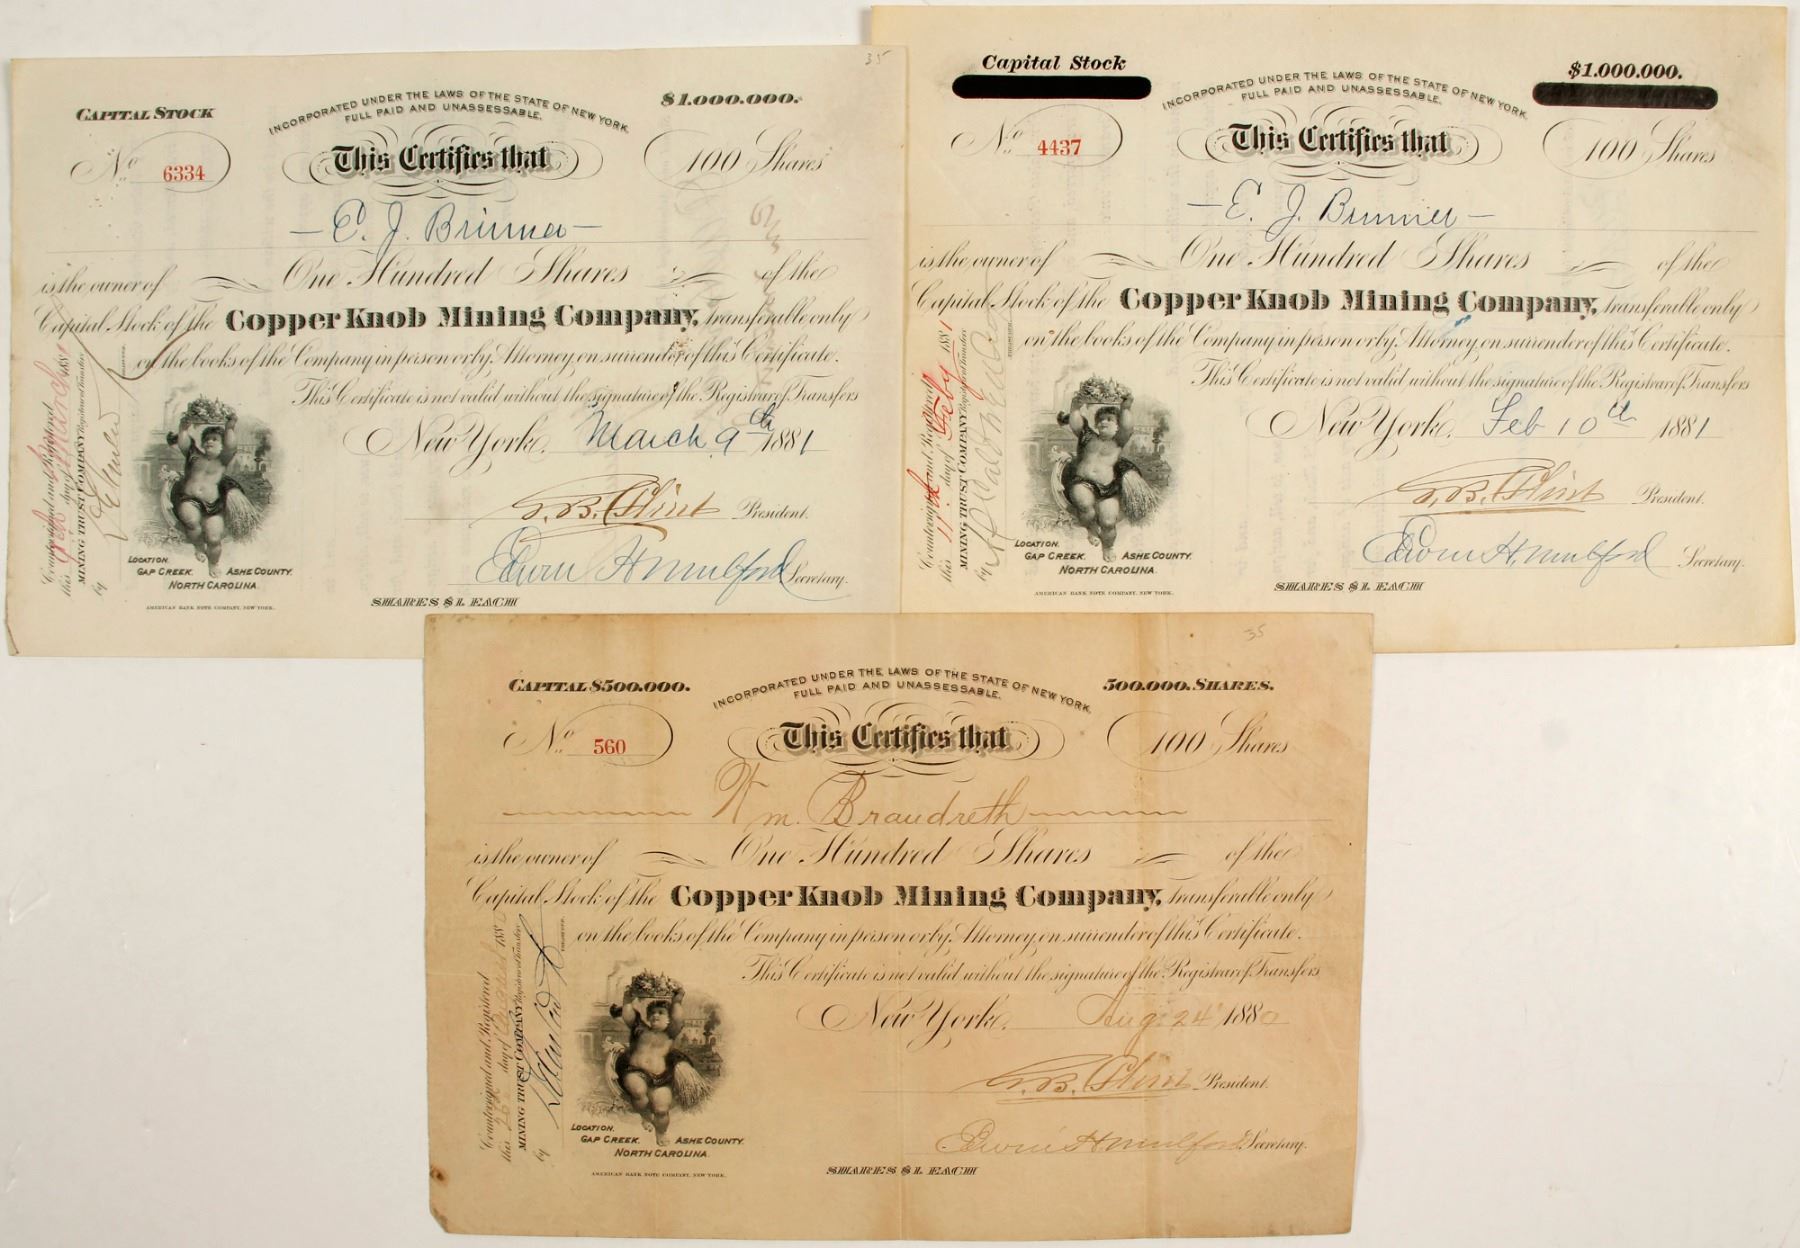 35
CAPITAL STOCK
INCORPORATED UNDER THE LAWS OF THE STATE OF NEW YORK.
FULL PAID AND UNASSESSABLE.
$1.000.000.
No. 6334
This Certifies that
100 Shares
— E. J. Brunner —
is the owner of One Hundred Shares of the
Capital Stock of the Copper Knob Mining Company, transferable only
on the books of the Company in person or by Attorney, on surrender of this Certificate.
This Certificate is not valid without the signature of the Registrar of Transfers
New York, March 9th 1881
G. B. Flint President.
Edwin H. Mulford Secretary.
Countersigned and Registered
this 9th day of March 1881
MINING TRUST COMPANY Registrar of Transfers
by
LOCATION.
GAP CREEK. ASHE COUNTY.
NORTH CAROLINA.
AMERICAN BANK NOTE COMPANY, NEW YORK.
SHARES $1. EACH
Capital Stock
INCORPORATED UNDER THE LAWS OF THE STATE OF NEW YORK.
FULL PAID AND UNASSESSABLE.
$1.000.000.
No. 4437
This Certifies that
100 Shares
— E. J. Brunner —
is the owner of One Hundred Shares of the
Capital Stock of the Copper Knob Mining Company, transferable only
on the books of the Company in person or by Attorney, on surrender of this Certificate.
This Certificate is not valid without the signature of the Registrar of Transfers
New York, Feb 10th 1881
G. B. Flint President.
Edwin H. Mulford Secretary.
Countersigned and Registered
this 11th day of Feby 1881
MINING TRUST COMPANY Registrar of Transfers
by
LOCATION.
GAP CREEK. ASHE COUNTY.
NORTH CAROLINA.
AMERICAN BANK NOTE COMPANY, NEW YORK.
SHARES $1. EACH
35
CAPITAL $500.000.
INCORPORATED UNDER THE LAWS OF THE STATE OF NEW YORK.
FULL PAID AND UNASSESSABLE.
500.000. SHARES.
No. 560
This Certifies that
100 Shares
Wm. Brandreth
is the owner of One Hundred Shares of the
Capital Stock of the Copper Knob Mining Company, transferable only
on the books of the Company in person or by Attorney, on surrender of this Certificate.
This Certificate is not valid without the signature of the Registrar of Transfers
New York, Aug. 24 1880
G. B. Flint President.
Edwin H. Mulford Secretary.
Countersigned and Registered
this 26 day of August 1880
MINING TRUST COMPANY Registrar of Transfers
by
LOCATION.
GAP CREEK. ASHE COUNTY.
NORTH CAROLINA.
AMERICAN BANK NOTE COMPANY, NEW YORK.
SHARES $1. EACH